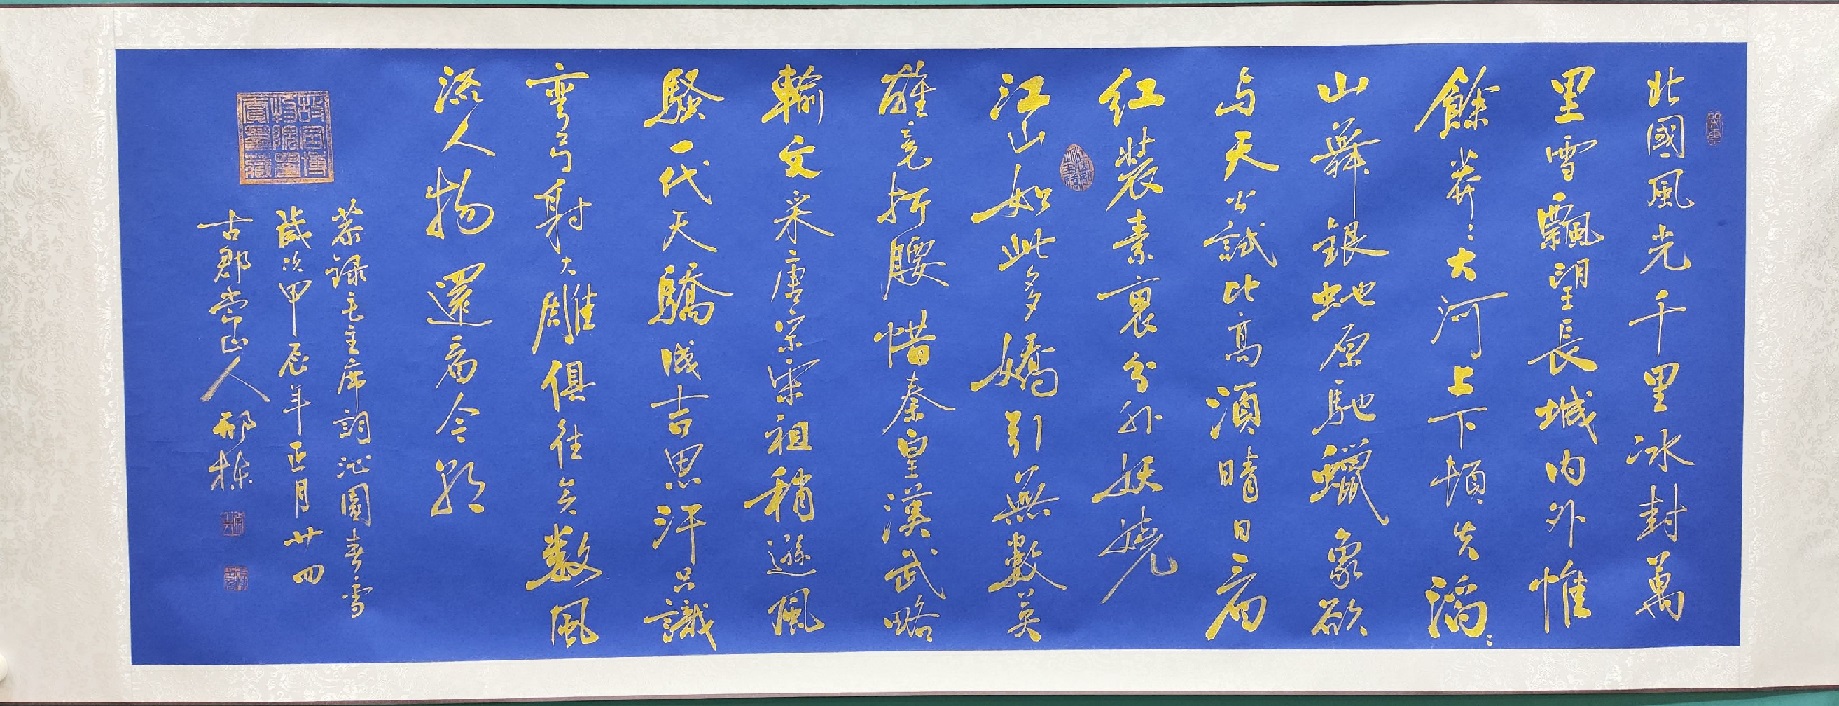 北國風光千里冰封萬
里雪飄望長城内外惟
餘莽〻大河上下頓失滔〻
山舞銀蛇原馳蠟象欲
与天公試比高須晴日看
红裝素裹分外妖嬈
江山如此多嬌引無數英
雄竞折腰惜秦皇漢武略
輸文采唐宗宋祖稍遜風
騷一代天驕成吉思汗只識
弯弓射大雕俱往矣数風
流人物還看今朝
恭録毛主席詞沁園春雪
歲次甲辰年正月廿四
古郡常山人邢栋
故宫博物院鉴真宝藏